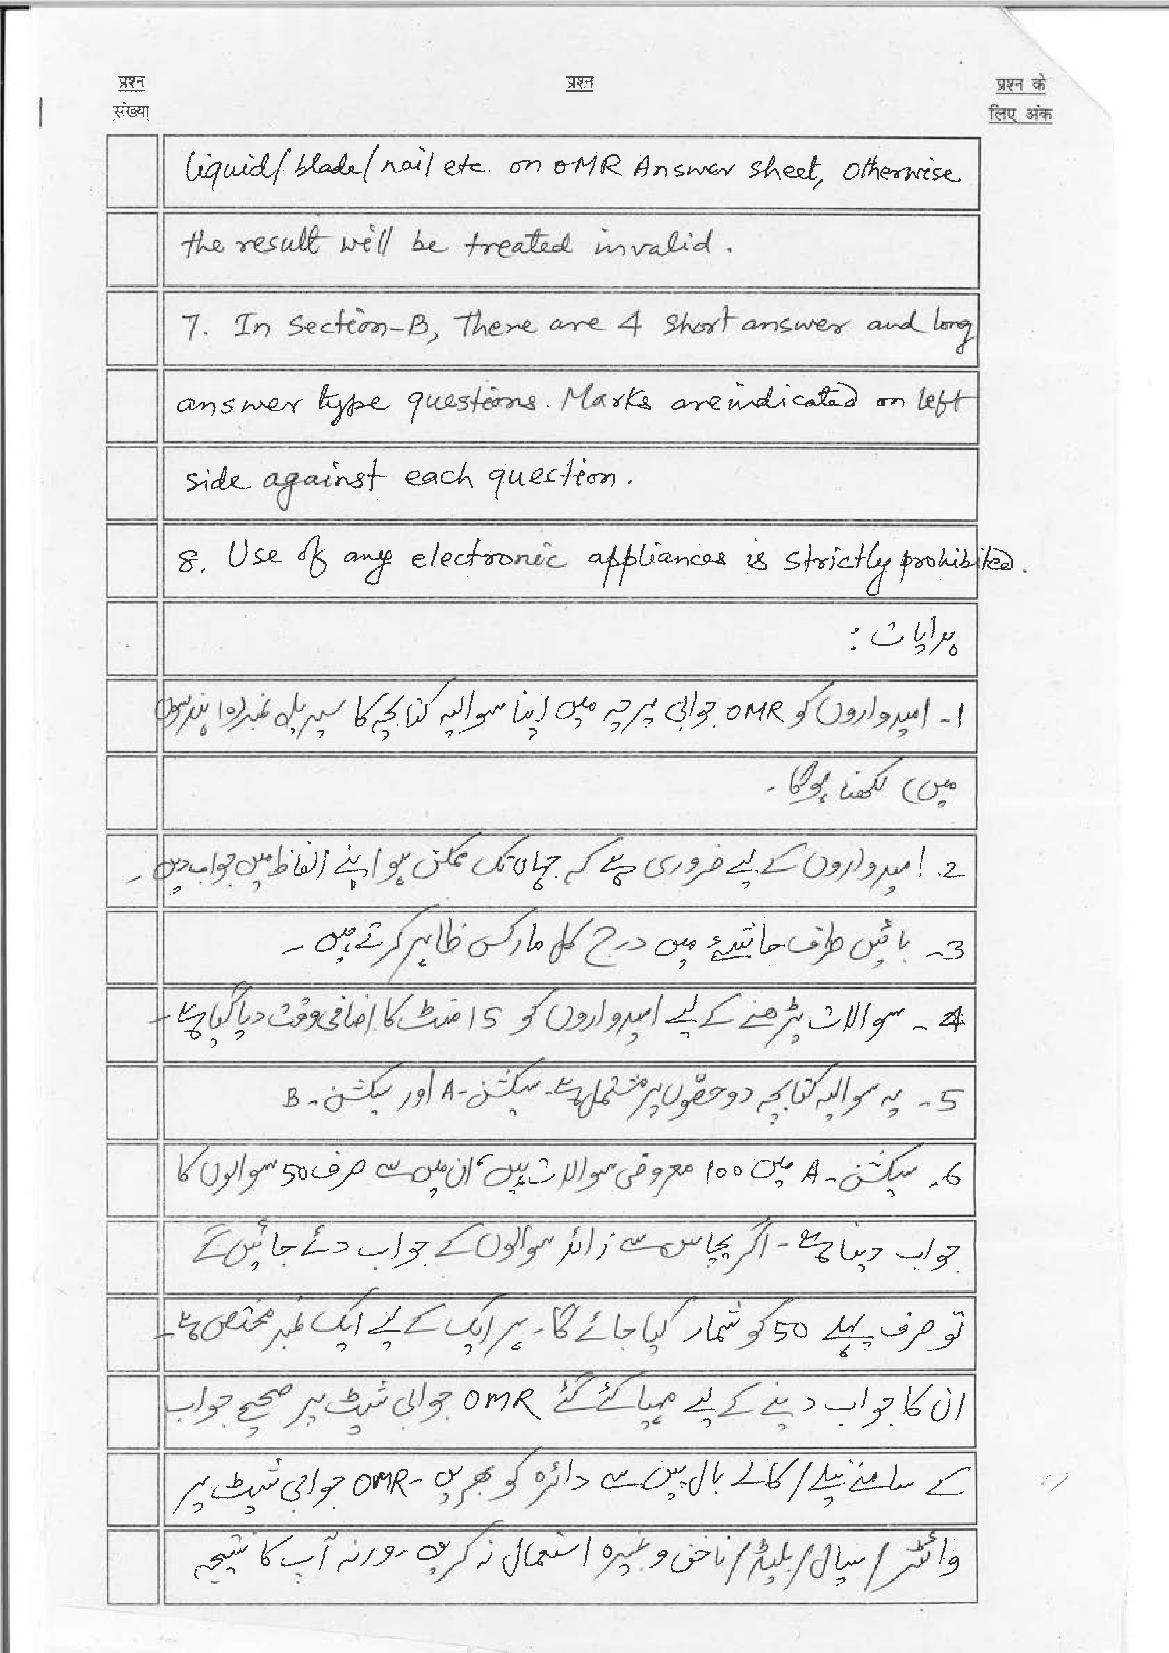 प्रश्न संख्या
प्रश्न
प्रश्न के लिए अंक
liquid/blade/nail etc. on OMR Answer sheet, otherwise
the result will be treated invalid.
7. In Section-B, There are 4 short answer and long
answer type questions. Marks are indicated on left
side against each question.
8. Use of any electronic appliances is strictly prohibited.
ہدایات :
1- امیدواروں کو OMR جوابی پرچہ میں اپنا سوالیہ کتابچہ کا سیریل نمبر (10 ہندسوں
میں) لکھنا ہوگا۔
2. امیدواروں کے لیے ضروری ہے کہ جہاں تک ممکن ہو اپنے الفاظ میں جواب دیں۔
3- بائیں طرف حاشیے میں درج کل مارکس ظاہر کرتے ہیں۔
4- سوالات پڑھنے کے لیے امیدواروں کو 15 منٹ کا اضافی وقت دیا گیا ہے۔
5- یہ سوالیہ کتابچہ دو حصّوں پر مشتمل ہے۔ سیکشن-A اور سیکشن-B
6- سیکشن-A میں 100 معروضی سوالات ہیں، ان میں سے صرف 50 سوالوں کا
جواب دینا ہے۔ اگر پچاس سے زائد سوالوں کے جواب دئے جائیں گے
تو صرف پہلے 50 کو شمار کیا جائے گا۔ ہر ایک کے لیے ایک نمبر مختص ہے۔
ان کا جواب دینے کے لیے مہیا کئے گئے OMR جوابی شیٹ پر صحیح جواب
کے سامنے نیلے/کالے بال پین سے دائرہ کو بھریں۔ OMR جوابی شیٹ پر
وائٹنر/سیال/بلیڈ/ناخن وغیرہ استعمال نہ کریں ۔ ورنہ آپ کا نتیجہ